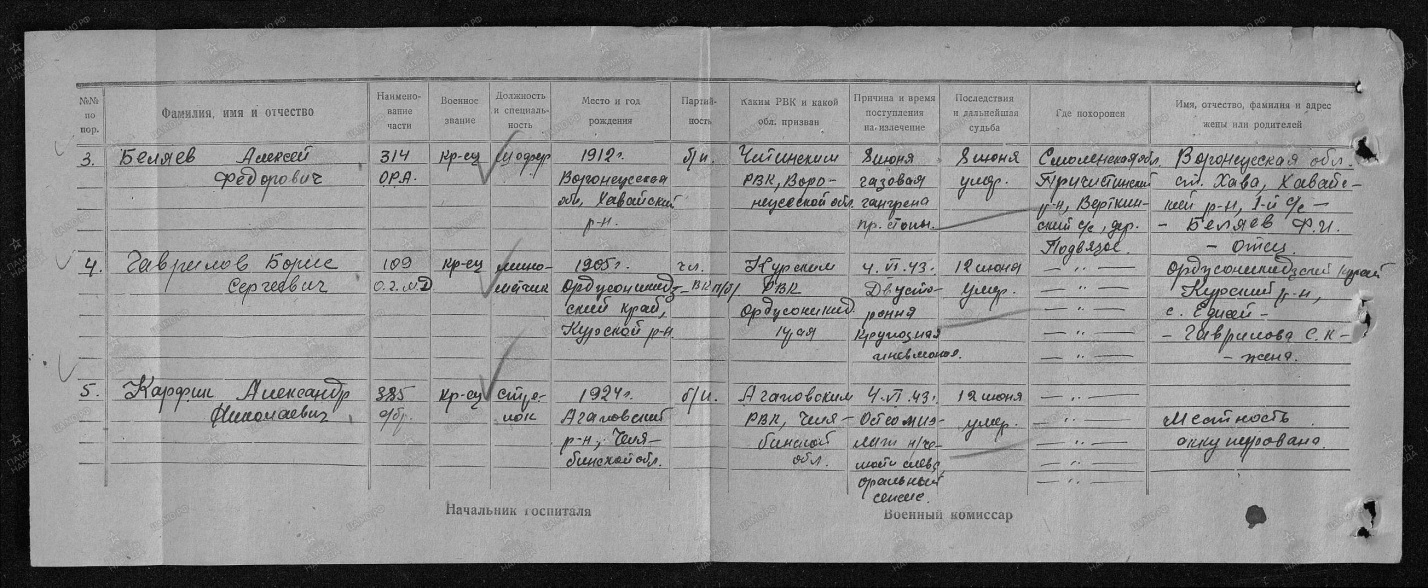 №№ по пор.
Фамилия, имя и отчество
Наимено-
вание
части
Военное
звание
Должность
и специаль-
ность
Место и год
рождения
Партий-
ность
Каким РВК и какой
обл. призван
Причина и время
поступления
на излечение
Последствия
и дальнейшая
судьба
Где похоронен
Имя, отчество, фамилия и адрес
жены или родителей
3. Беляев Алексей
Федорович
314
ОРА.
кр-ец
шофер
1912г.
Воронежская
обл, Хавайский
р-н.
б/п.
Читинским
РВК, Воро-
нежской обл.
8 июня
газовая
гангрена
пр. стопы.
8 июня
умер.
Смоленская обл.
Пречистинский
р-н, Верткин-
ский с/с, дер.
Подвязье.
Воронежская обл.
ст. Хава, Хавайс-
кий р-н, 1-й с/с -
- Беляев Ф.И.
- отец
4. Гаврилов Борис
Сергеевич
109
кр-ец
мино-
метчик
1905г.
Орджоникидз-
ский край,
Курской р-н.
чл.
ВКП/б/
Курским
РВК
Орджоникид.
края
4.VI.43г.
Двусто-
ронняя
крупозная
пневмония.
12 июня
умер.
— " —
— " —
— " —
— " —
— " —
Орджоникидзский край
Курский р-н,
с. Едисей -
- Гаврилова С.К -
- жена.
5. Карфик Александр
Николаевич
385
с/бр.
кр-ец
стре-
лок
1924г.
Агаповский
р-н, Челя-
бинской обл.
б/п.
Агаповским
РВК, Челя-
бинской
обл.
4.VI.43г.
Остеомиэ-
лит н/че-
люсти слева,
оральный
сепсис.
12 июня
умер.
— " —
— " —
— " —
— " —
— " —
Местность
оккупирована
Начальник госпиталя
Военный комиссар